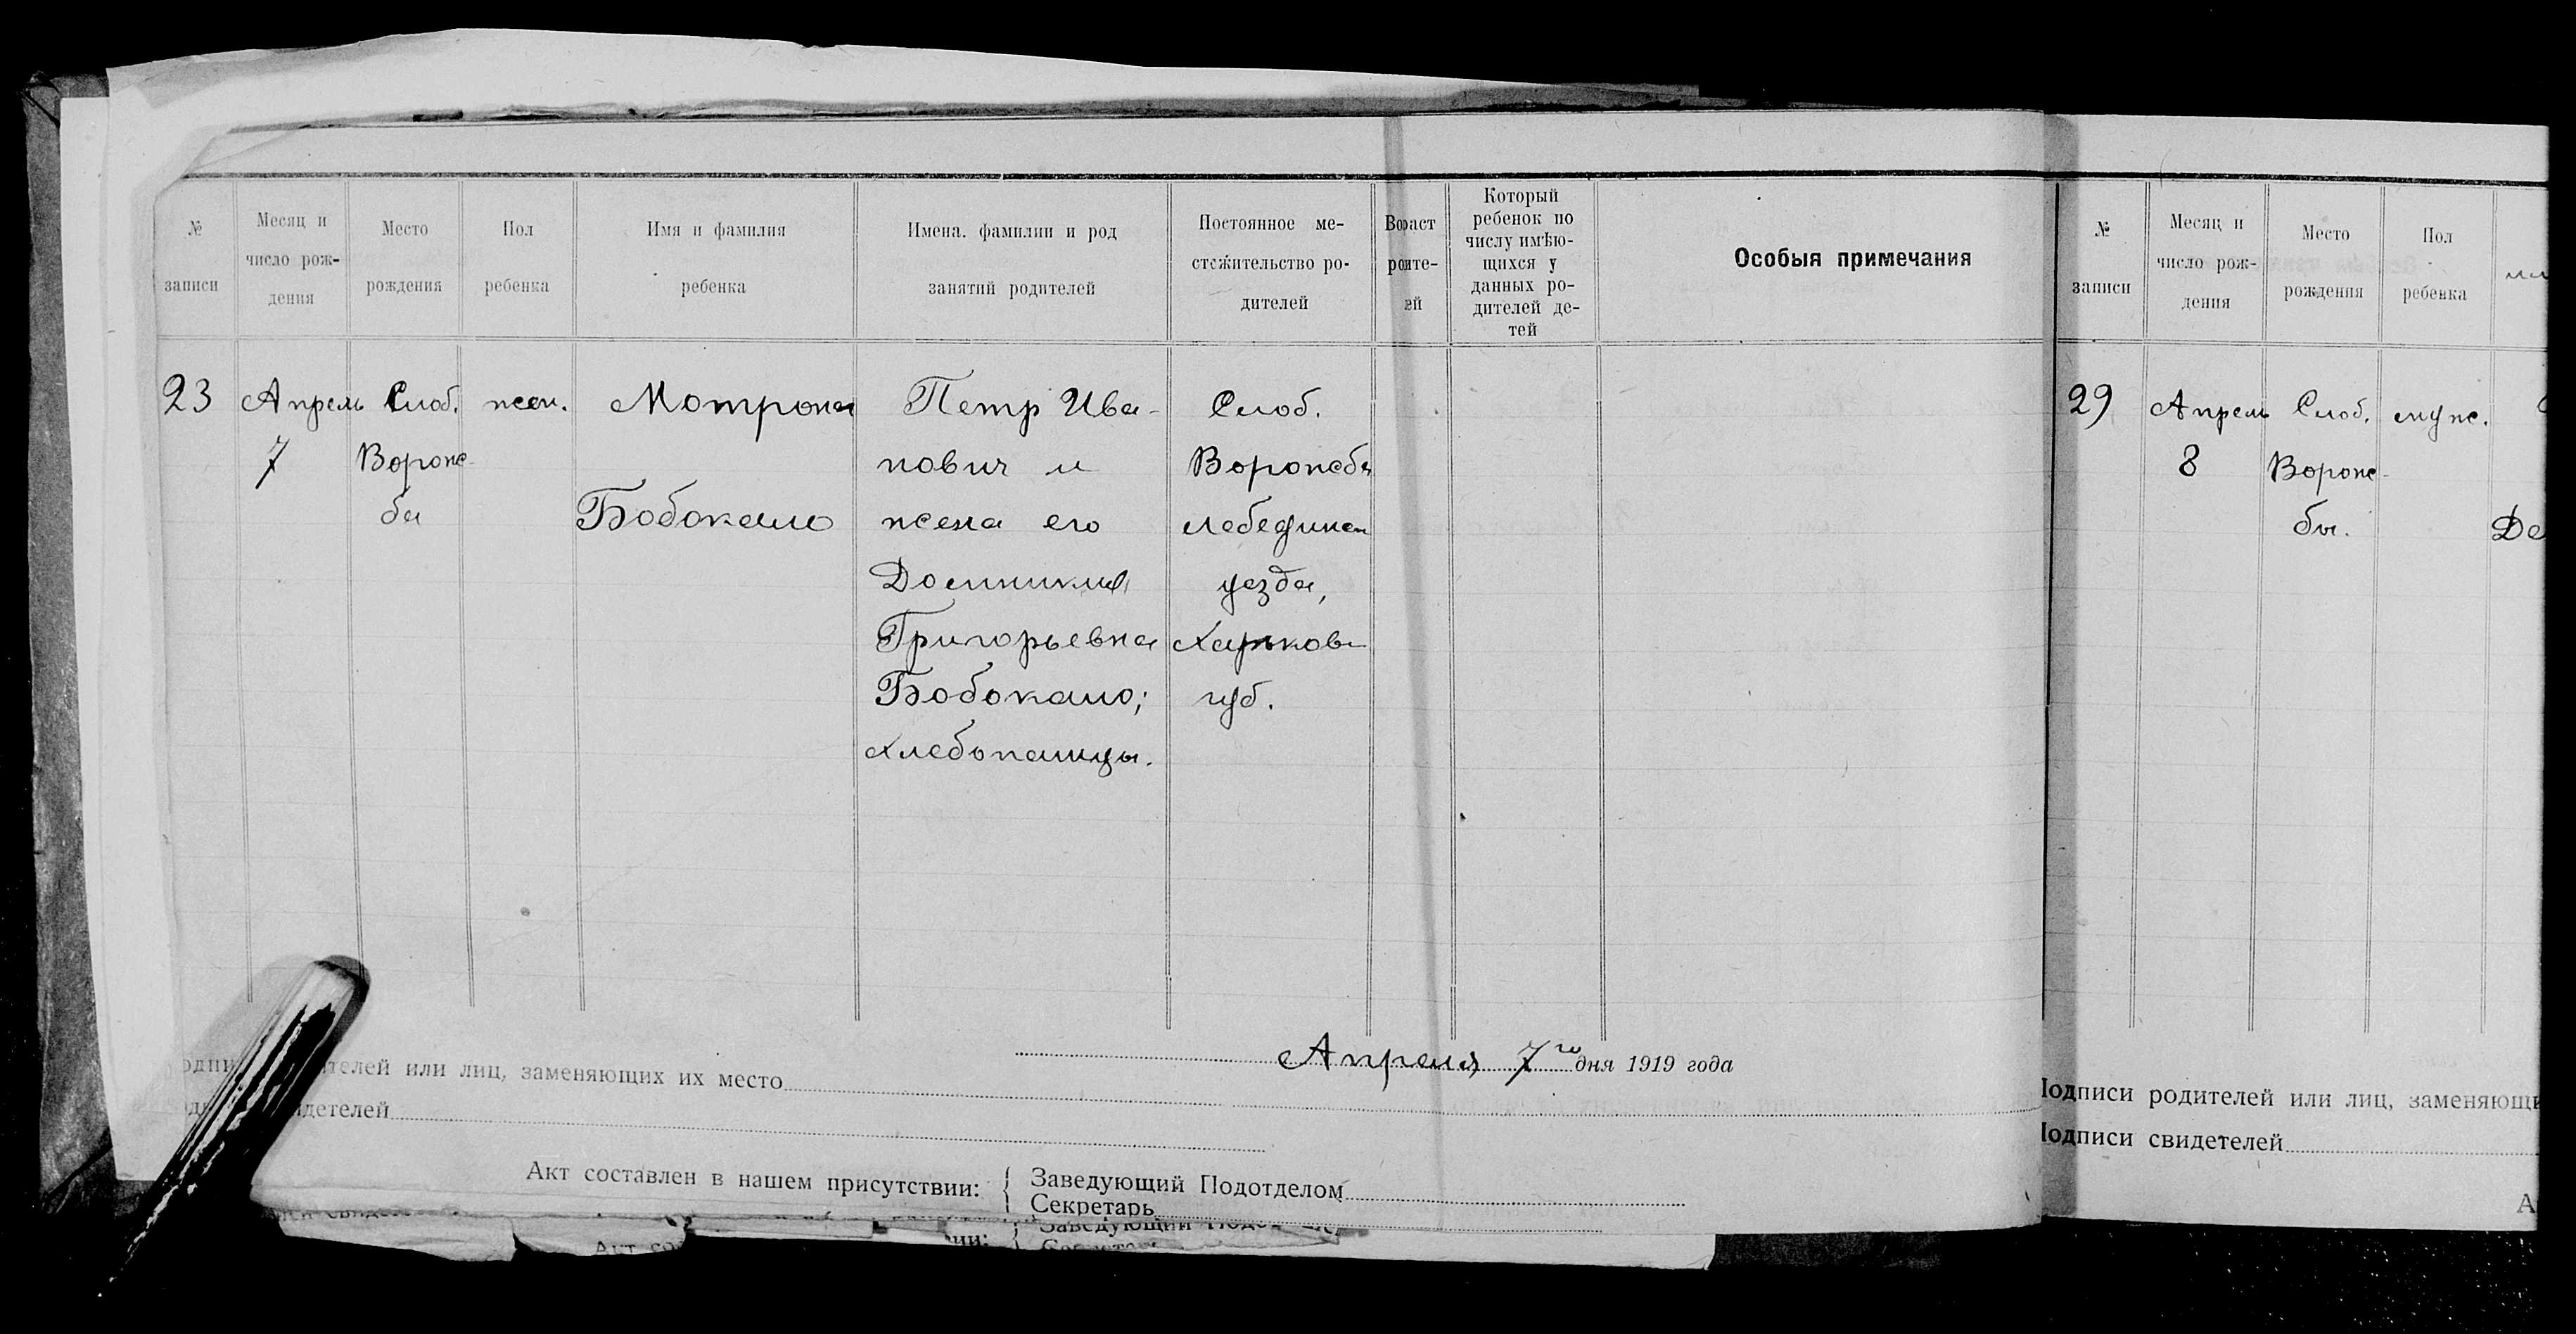 № записи
Месяц и число рождения
Место рождения
Пол ребенка
Имя и фамилия ребенка
Имена. фамилии и род занятий родителей
Постоянное местожительство родителей
Возраст родителей
Который ребенок по числу имѣющихся у данных родителей детей
Особыя примечания
23
Апрель
7
Слоб.
Ворож-
ба
жен.
Мотрона
Бобокало
Петр Ива-
нович и
жена его
Домникия
Григорьевна
Бобокало;
хлебопашцы.
Слоб.
Ворожбы
Лебединск
уезда,
Харьков
губ.
Апреля 7го дня 1919 года
родителей или лиц, заменяющих их место
свидетелей
Акт составлен в нашем присутствии:
Заведующий Подотделом
Секретарь
№ записи
Месяц и число рождения
Место рождения
Пол ребенка
29
Апрель
8
Слоб.
Ворож-
бы.
муж.
Де
Подписи родителей или лиц, заменяющи
Подписи свидетелей
А